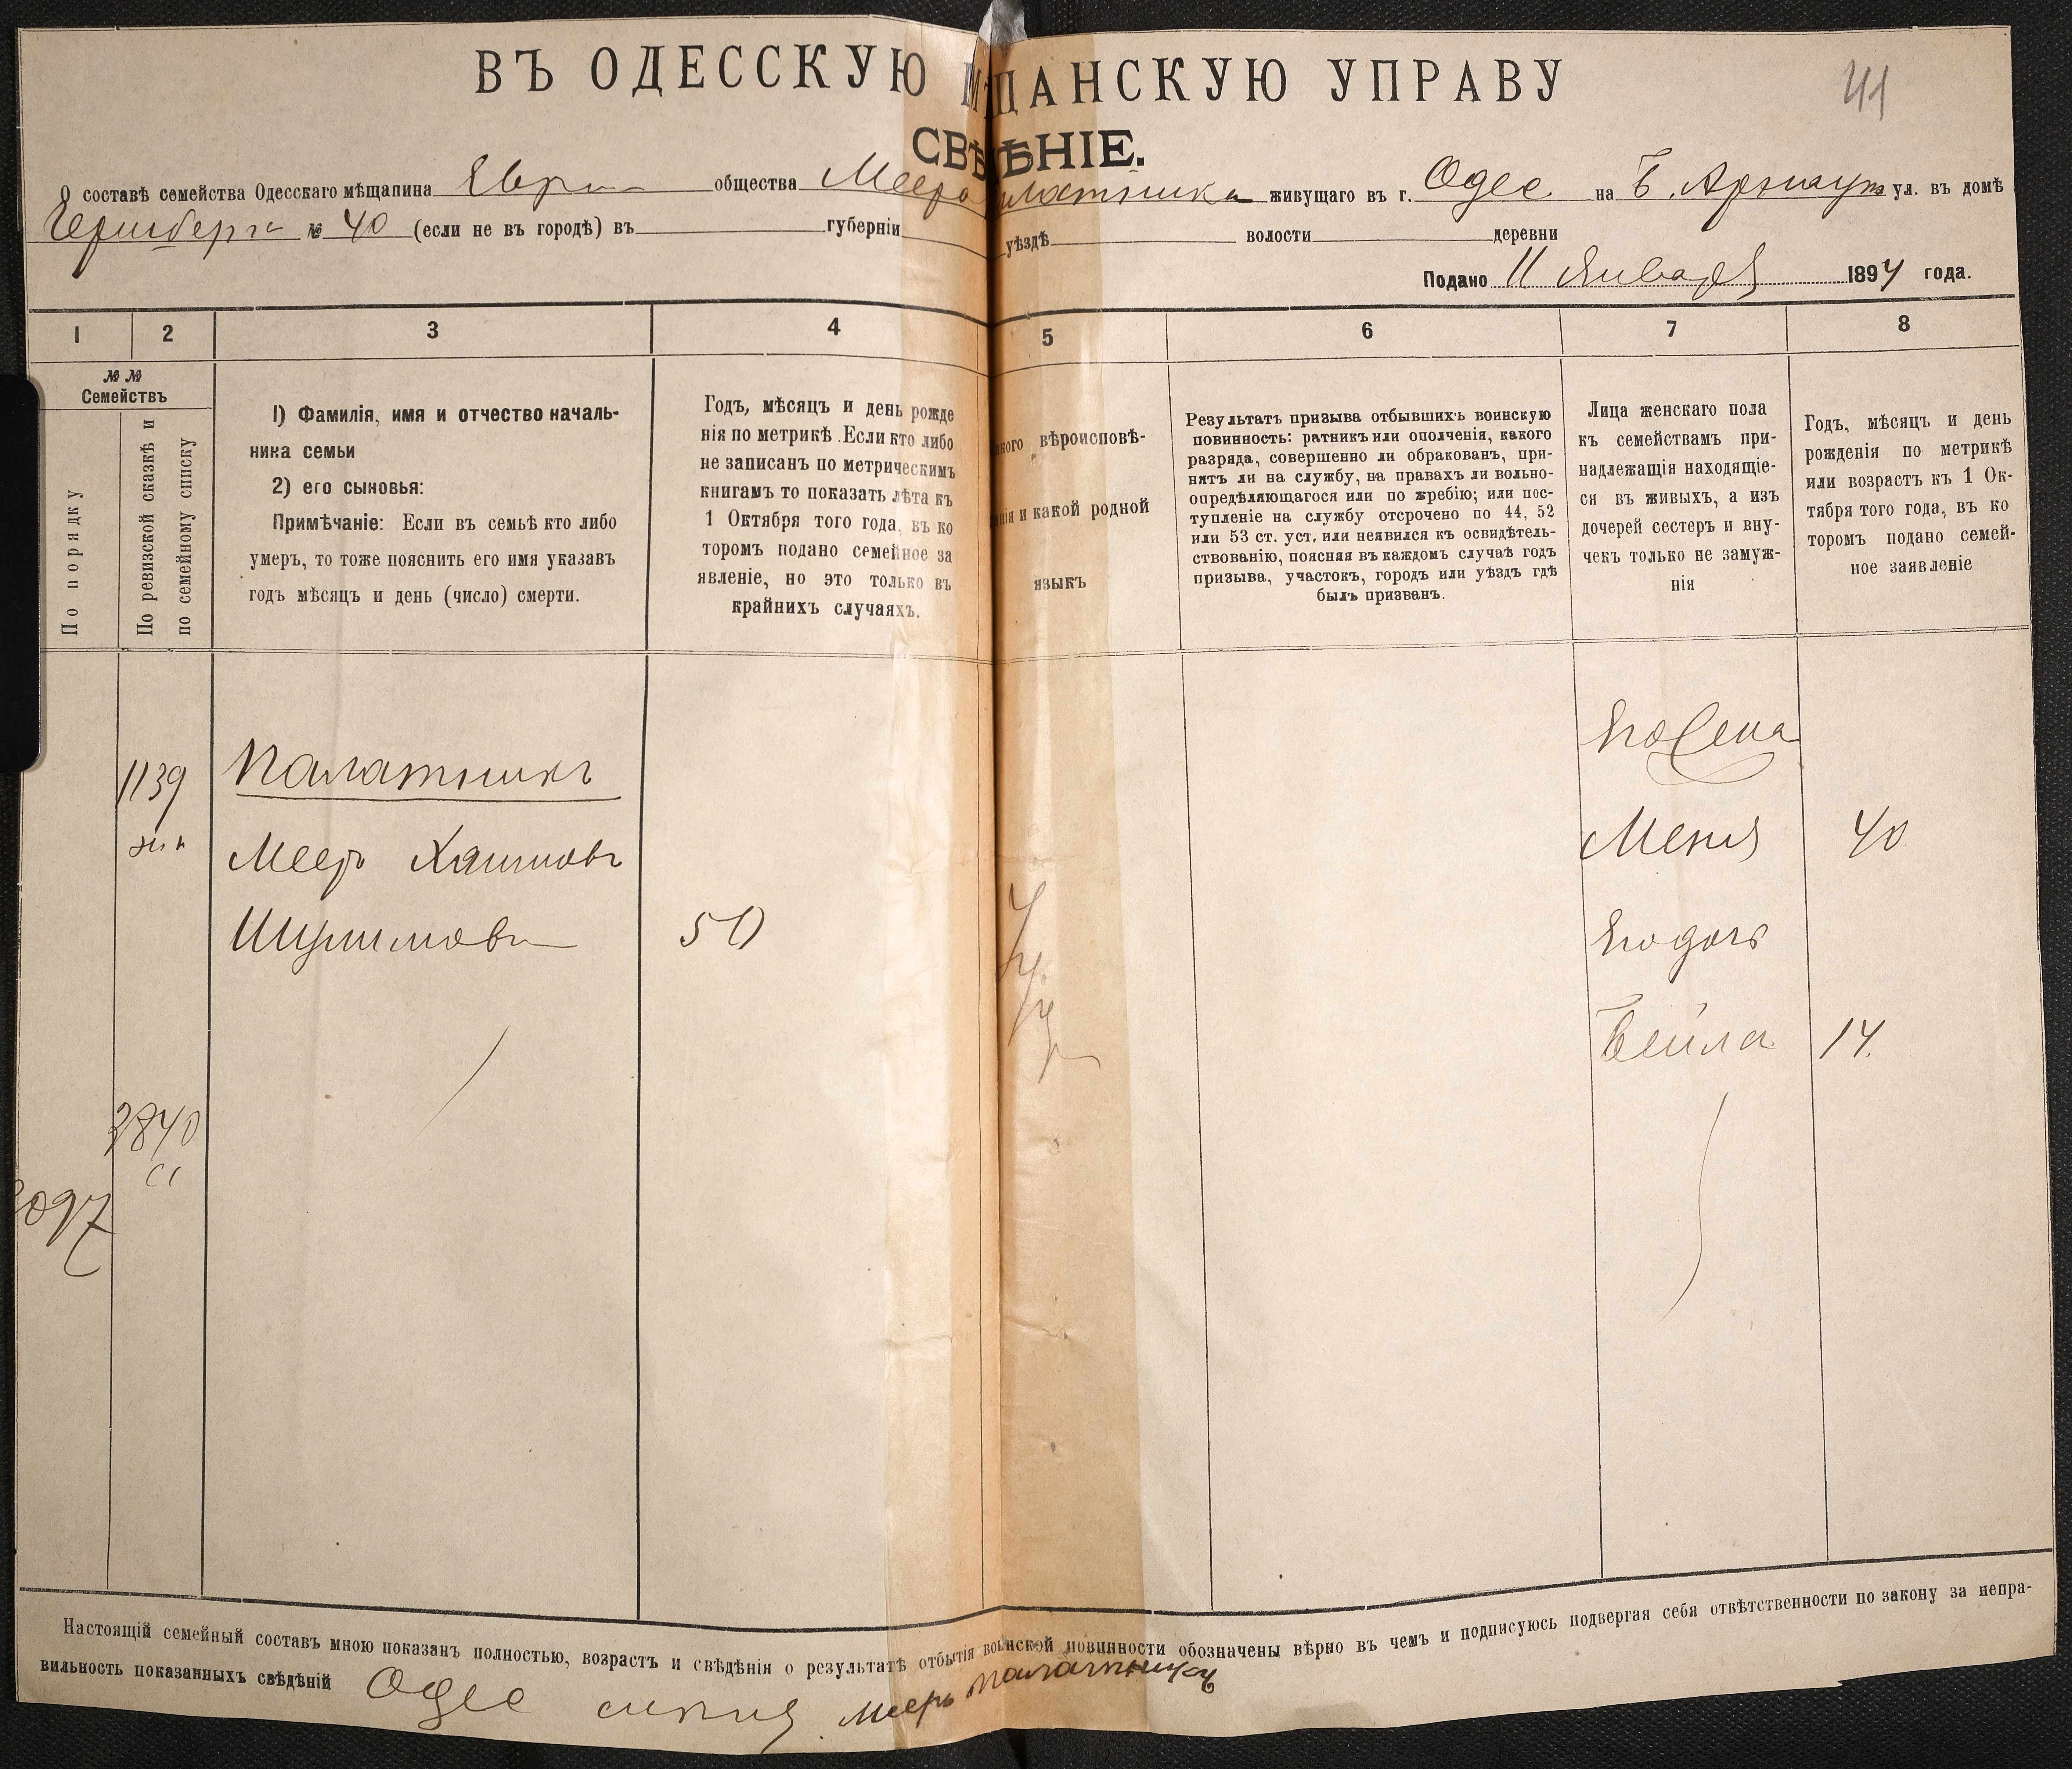 ВЪ ОДЕССКУЮ МЩАНСКУЮ УПРАВУ
41
СВѢѢНІЕ.
О составѣ семейства Одесскаго мѣщанина Евр общества Меера латника живущаго въ г. Одес на Б. Арнаут ул. въ домѣ
№ 40 (если не въ городѣ) въ губерніи уѣздѣ волости деревни
Подано 11 Января 1894 года.
1 2 3 4 5 6 7 8
№ № Семействъ
По порядку
По ревизской сказкѣ и по семейному списку
1) Фамилія, имя и отчество началь-
ника семьи
2) его сыновья:
Примѣчаніе: Если въ семьѣ кто либо
умеръ, то тоже пояснить его имя указавъ
годъ мѣсяцъ и день (число) смерти.
Годъ, мѣсяцъ и день рожде
нія по метрикѣ. Если кто либо
не записанъ по метрическимъ
книгамъ то показать лѣта къ
1 Октября того года, въ ко
торомъ подано семейное за
явленіе, но это только въ
крайнихъ случаяхъ.
акого вѣроисповѣ-
анія и какой родной
языкъ
Результатъ призыва отбывшихъ воинскую
повинность: ратникъ или ополченія, какого
разряда, совершенно ли обракованъ, при-
нятъ ли на службу, на правахъ ли вольно-
опредѣляющагося или по жребію; или пос-
тупленіе на службу отсрочено по 44, 52
или 53 ст. уст, или неявился къ освидѣтель-
ствованію, поясняя въ каждомъ случаѣ годъ
призыва, участокъ, городъ или уѣздъ гдѣ
былъ призванъ.
Лица женскаго пола
къ семействамъ при-
надлежащія находящіе-
ся въ живыхъ, а изъ
дочерей сестеръ и вну-
чекъ только не замуж-
нія
Годъ, мѣсяцъ и день
рожденія по метрикѣ
или возрастъ къ 1 Ок-
тября того года, въ ко
торомъ подано семей-
ное заявленіе
1139 Палатникъ Его жена
Мееръ Хаимовъ Меня 40
Шулимовъ 50 Его дочь
Бейла 14.
3840
3097
Настоящій семейный составъ мною показанъ полностью, возрастъ и свѣдѣнія о результатѣ отбытія воинской повинности обозначены вѣрно въ чемъ и подписуюсь подвергая себя отвѣтственности по закону за непра-
вильность показанныхъ свѣдѣній Одес Мееръ Палатникъ